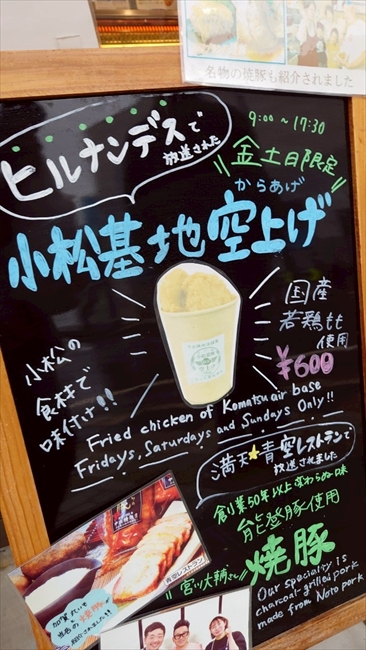 名物の焼豚も紹介されました
ヒルナンデスで
放送された
9:00~17:30
金土日限定
からあげ
小松基地空上げ
国産
若鶏もも
使用
¥600
小松の
食材で
味付け!!
Fried chicken of Komatsu air base
Fridays, Saturdays and Sundays Only!!
満天★青空レストランで
放送されました
創業50年以上変わらぬ味
能登豚使用
焼豚
Our specialty is
charcoal-grilled pork
made from Noto pork
青空レストラン
宮川大輔さん